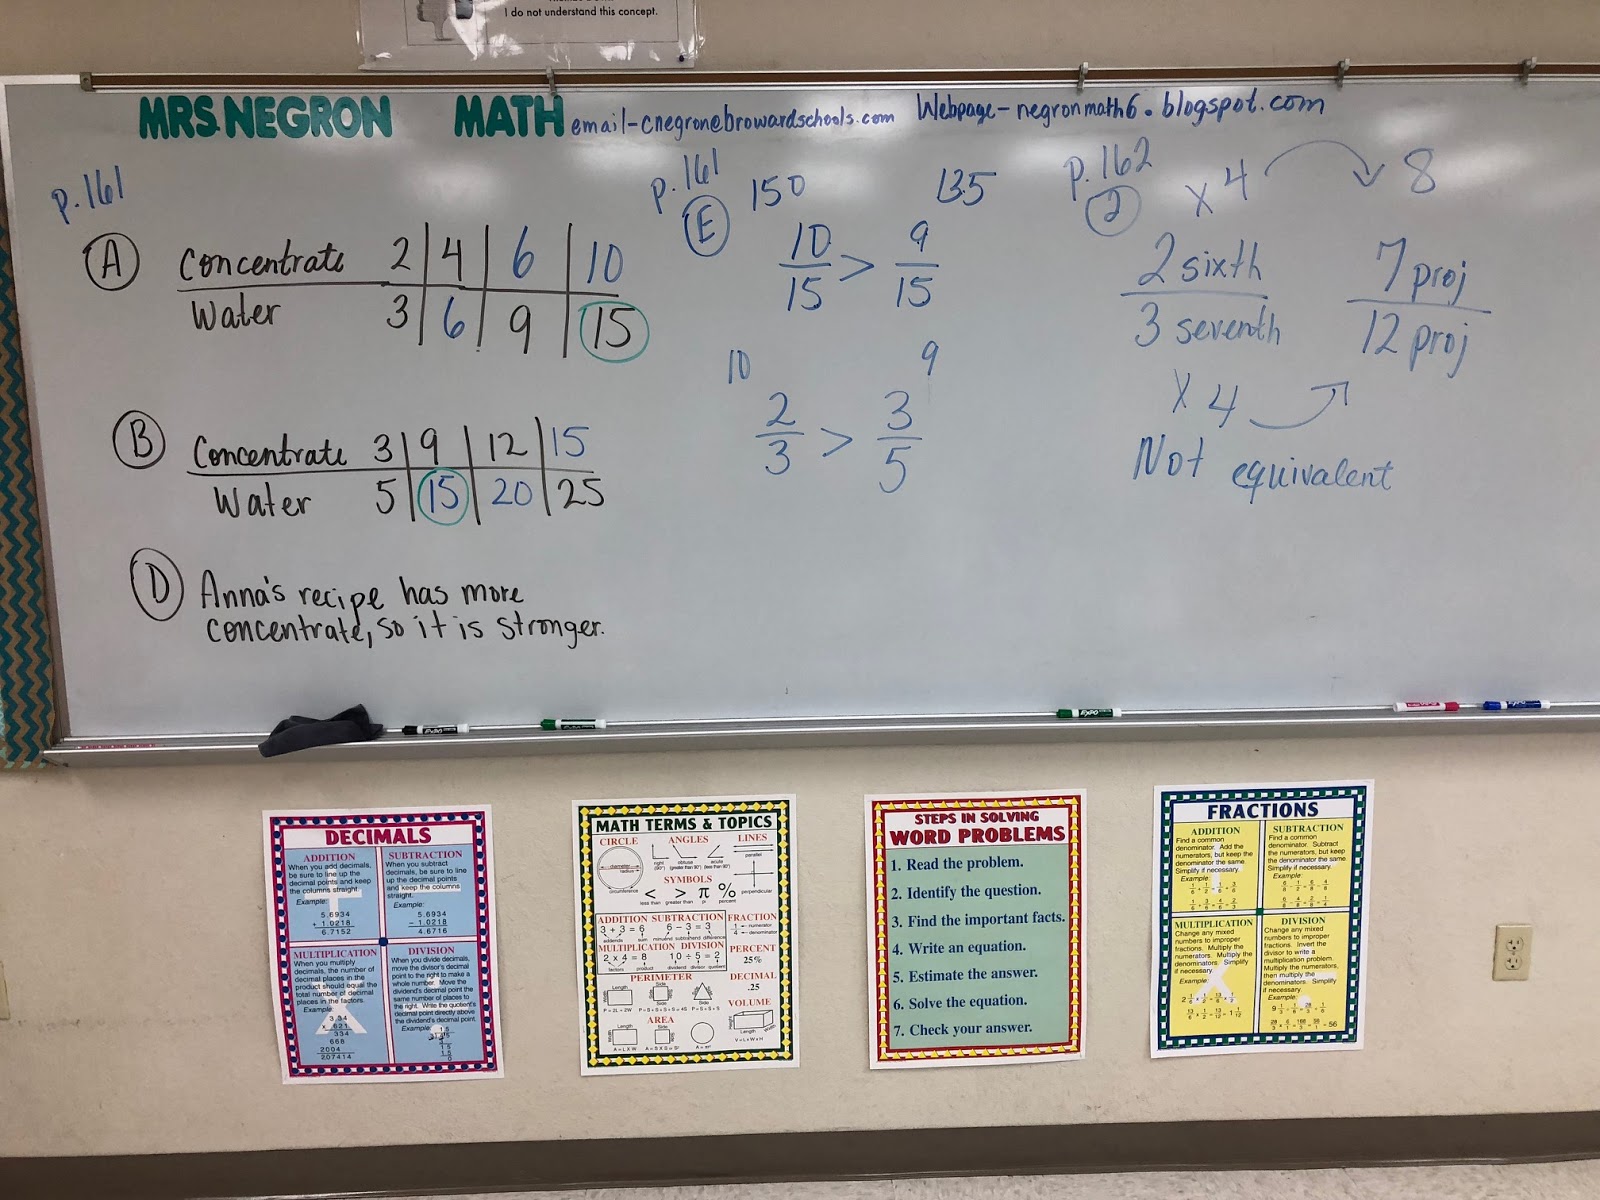 I do not understand this concept.
MRS. NEGRON MATH email-cnegron@browardschools.com Webpage-negronmath6.blogspot.com
p.161
A
Concentrate 2 4 6 10
Water 3 6 9 15
B
Concentrate 3 9 12 15
Water 5 15 20 25
D Anna's recipe has more
concentrate, so it is stronger.
p.161
E
150 135
10/15 > 9/15
10 9
2/3 > 3/5
p.162
2
x 4 8
2 sixth 7 proj
3 seventh 12 proj
x 4
Not equivalent
DECIMALS
ADDITION
When you add decimals,
be sure to line up the
decimal points and keep
the columns straight.
Example:
5.6934
+ 1.0218
6.7152
SUBTRACTION
When you subtract
decimals, be sure to line
up the decimal points
and keep the columns
straight.
Example:
5.6934
- 1.0218
4.6716
MULTIPLICATION
When you multiply
decimals, the number of
decimal places in the
product should equal the
total number of decimal
places in the factors.
Example:
3.34
x .621
334
668
2004
.207414
DIVISION
When you divide decimals,
move the divisor's decimal
point to the right to make a
whole number. Move the
dividend's decimal point the
same number of places to
the right. Write the quotient's
decimal point directly above
the dividend's decimal point.
Example:
MATH TERMS & TOPICS
CIRCLE
diameter
radius
circumference
ANGLES
right obtuse acute
LINES
parallel
perpendicular
SYMBOLS
< > π %
less than greater than pi percent
ADDITION SUBTRACTION
3 + 3 = 6 6 - 3 = 3
addends sum minuend subtrahend difference
MULTIPLICATION DIVISION
2 x 4 = 8 10 ÷ 5 = 2
factors product dividend divisor quotient
FRACTION
1 numerator
4 denominator
PERCENT
25%
DECIMAL
.25
PERIMETER
Length Side Side
AREA
Length Side
A = L X W
VOLUME
Length
V = L x W x H
STEPS IN SOLVING
WORD PROBLEMS
1. Read the problem.
2. Identify the question.
3. Find the important facts.
4. Write an equation.
5. Estimate the answer.
6. Solve the equation.
7. Check your answer.
FRACTIONS
ADDITION
Find a common
denominator. Add the
numerators, but keep
the denominator the same.
Simplify if necessary.
Example:
SUBTRACTION
Find a common
denominator. Subtract
the numerators, but keep
the denominator the same.
Simplify if necessary.
Example:
MULTIPLICATION
Change any mixed
numbers to improper
fractions. Multiply the
numerators. Multiply the
denominators. Simplify
if necessary.
Example:
DIVISION
Change any mixed
numbers to improper
fractions. Invert the
divisor to write a
multiplication problem.
Multiply the numerators,
then multiply the
denominators. Simplify
if necessary.
Example:
EXPO
EXPO